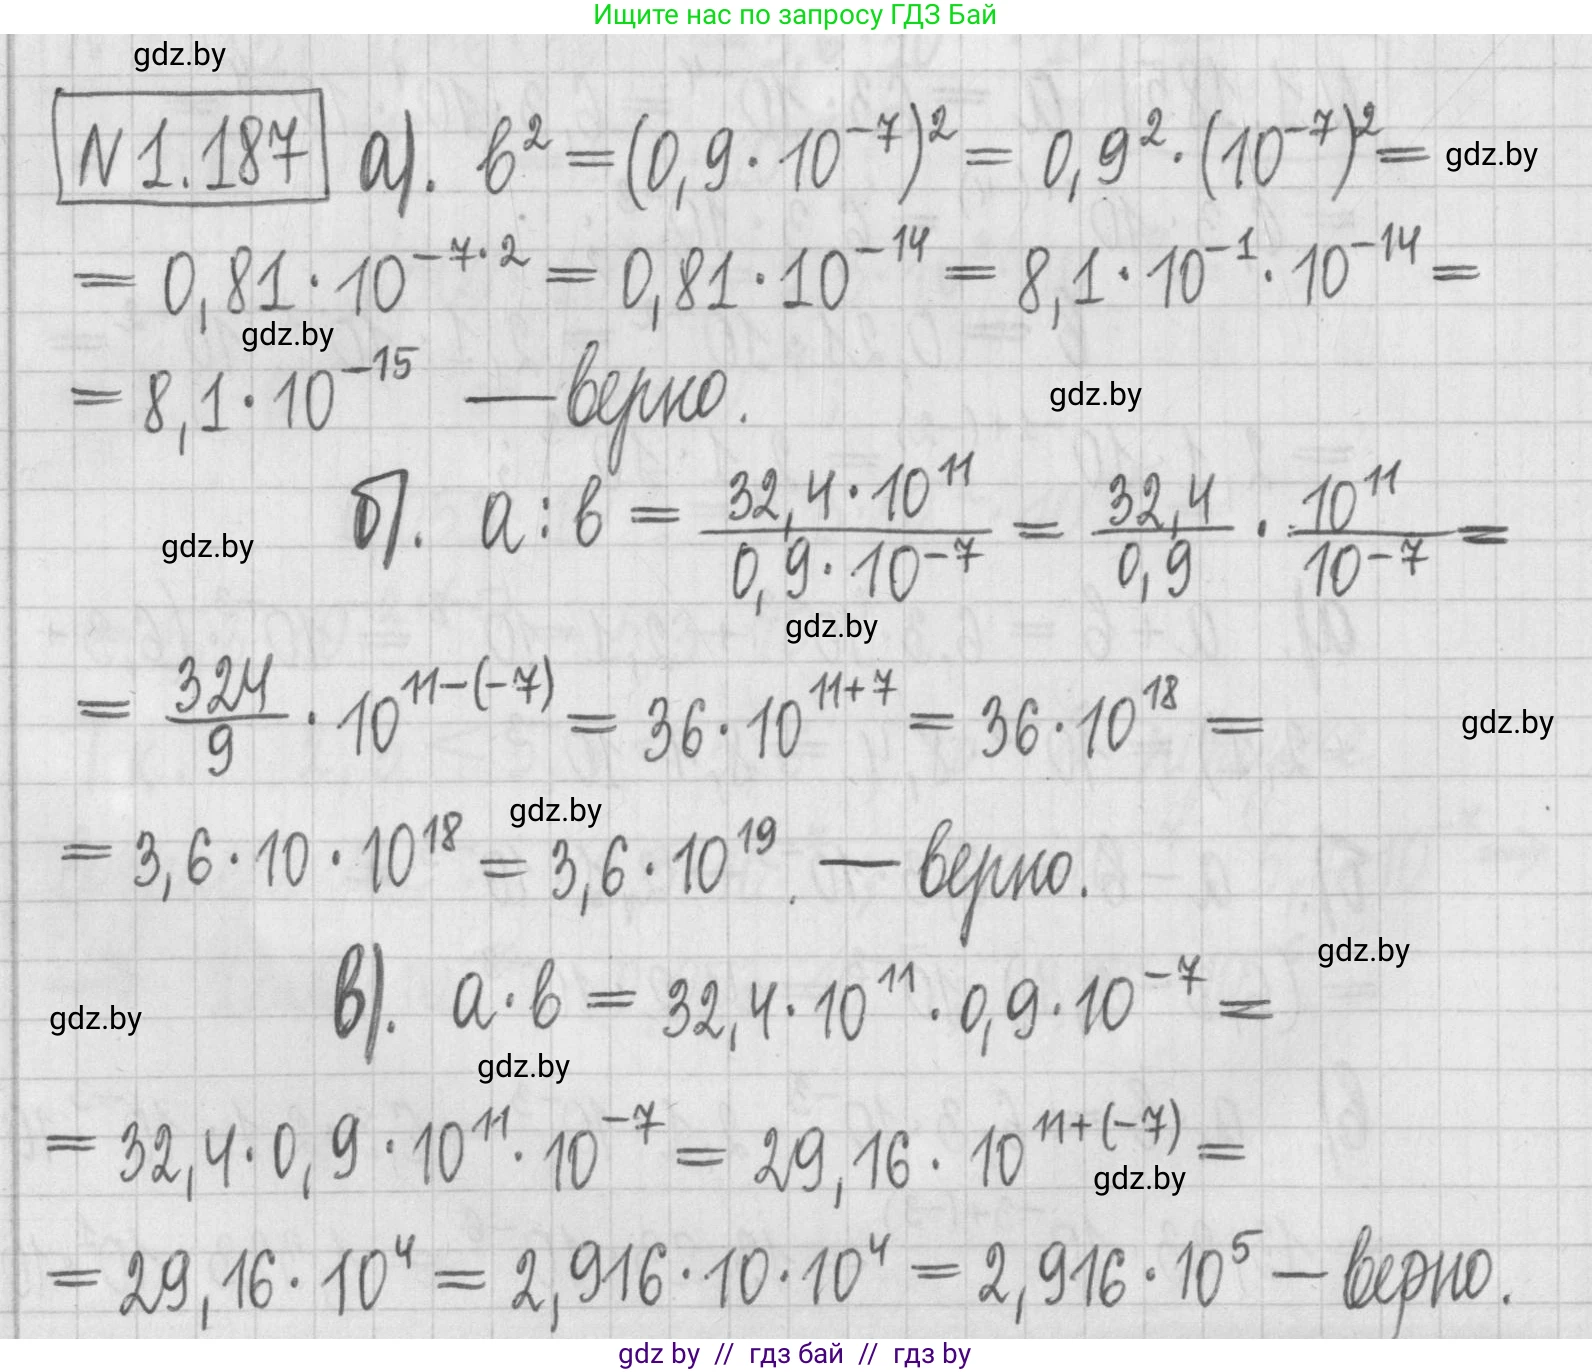 Ищите нас по запросу ГДЗ Бай
gdz.by
N 1.187 а). b² = (0,9 · 10⁻⁷)² = 0,9² · (10⁻⁷)² = gdz.by
= 0,81 · 10⁻⁷·² = 0,81 · 10⁻¹⁴ = 8,1 · 10⁻¹ · 10⁻¹⁴ =
gdz.by
= 8,1 · 10⁻¹⁵ — верно. gdz.by
gdz.by б). a : b = 32,4 · 10¹¹ / 0,9 · 10⁻⁷ = 32,4 / 0,9 · 10¹¹ / 10⁻⁷ =
gdz.by
= 324 / 9 · 10¹¹⁻⁽⁻⁷⁾ = 36 · 10¹¹⁺⁷ = 36 · 10¹⁸ = gdz.by
gdz.by
= 3,6 · 10 · 10¹⁸ = 3,6 · 10¹⁹. — верно.
gdz.by
gdz.by в). a · b = 32,4 · 10¹¹ · 0,9 · 10⁻⁷ =
gdz.by
= 32,4 · 0,9 · 10¹¹ · 10⁻⁷ = 29,16 · 10¹¹⁺⁽⁻⁷⁾ =
gdz.by
= 29,16 · 10⁴ = 2,916 · 10 · 10⁴ = 2,916 · 10⁵ — верно.
gdz by // гдз бай // гдз by